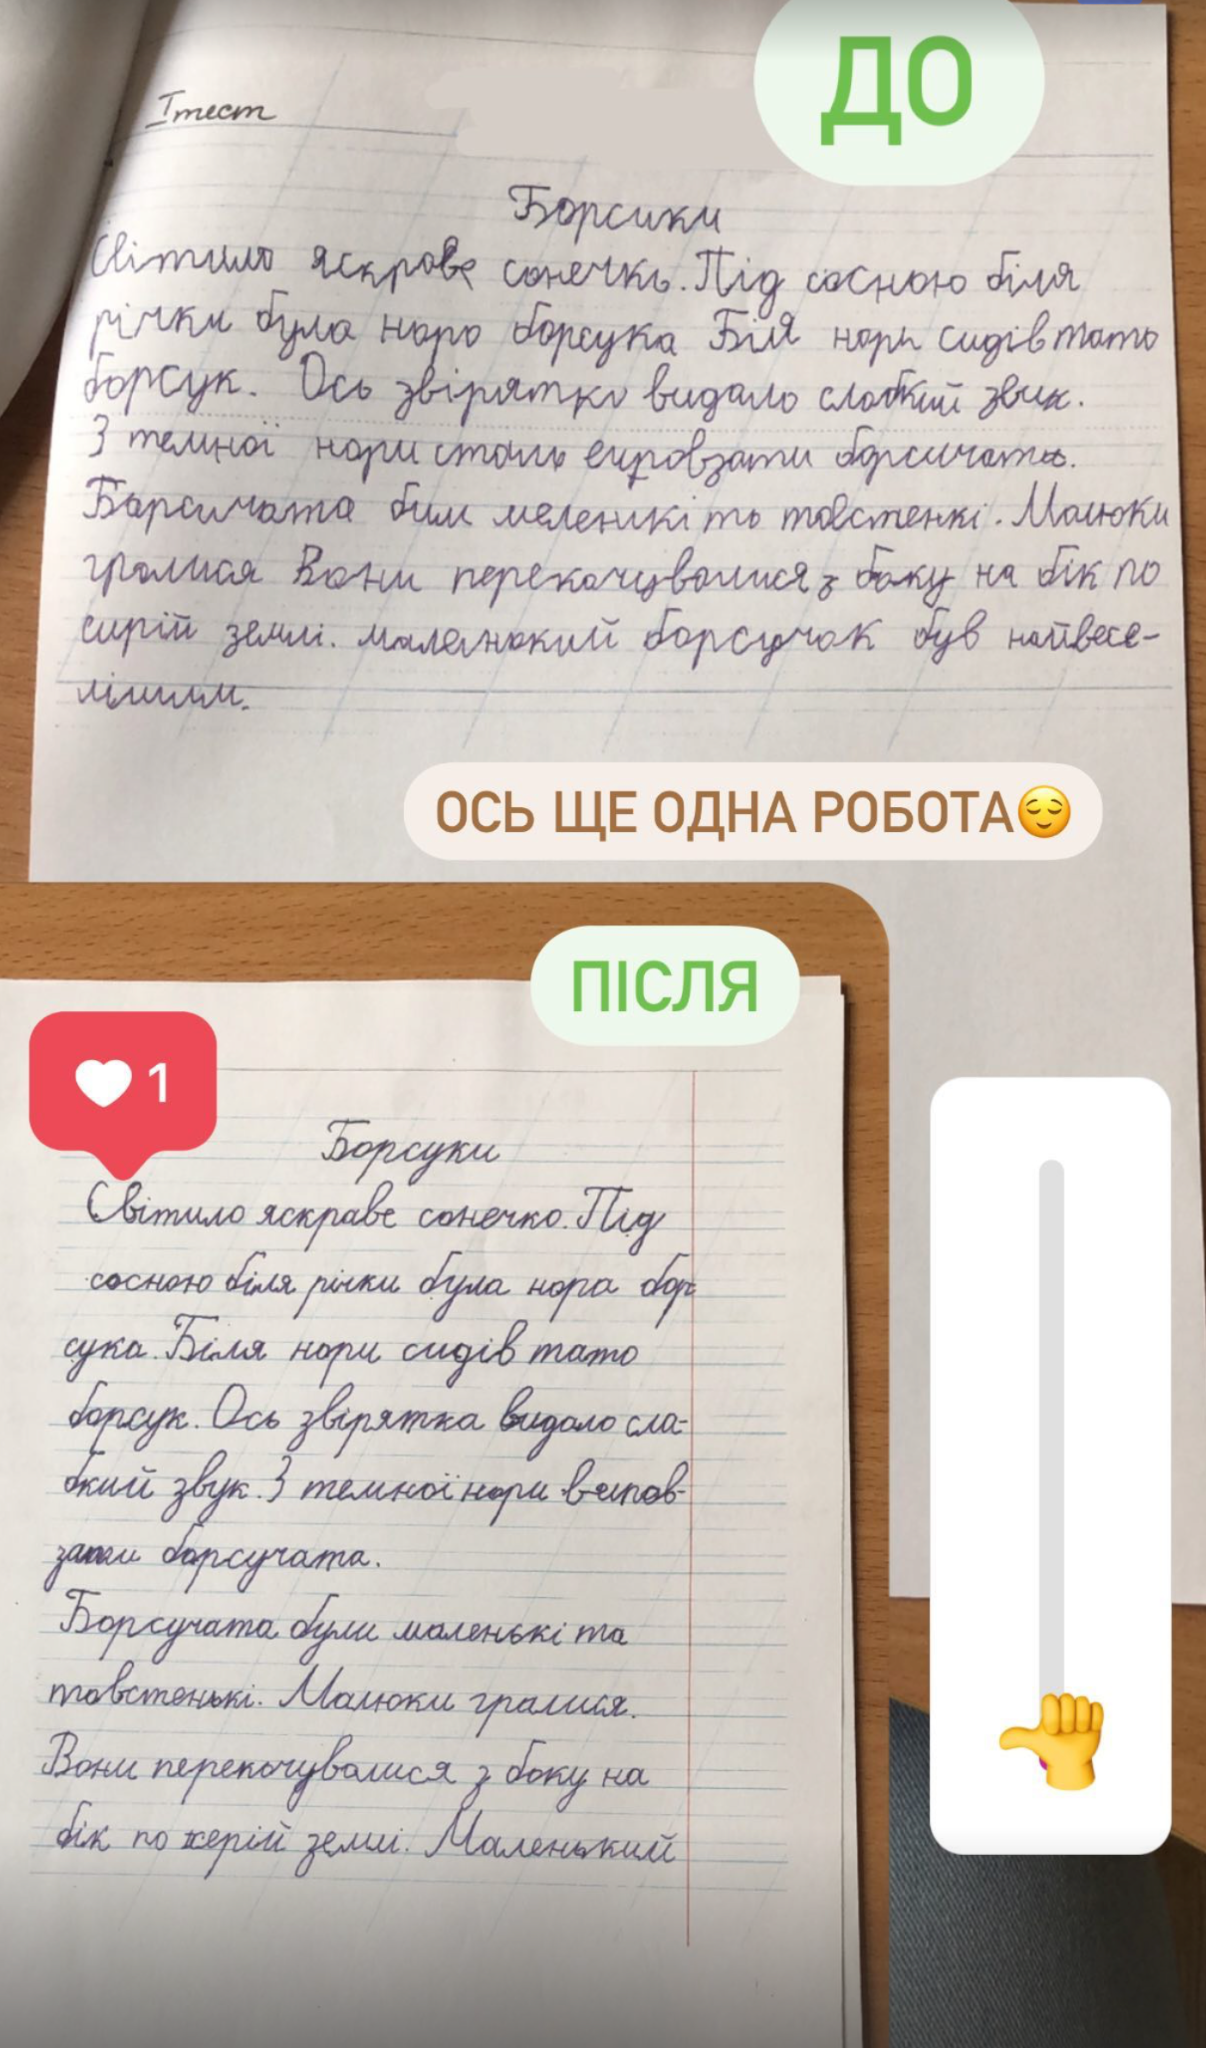 ДО
І тест
Борсики
Світило яскраве сонечкь. Під сосною біля
річки була нора борсука Біля нори сидів тато
борсук. Ось звірятко видало слабкий звик.
З темної нори стали борсичата.
Борсичата були меленикі та товстенкі. Малюки
гралися Вони перекочувалися з боку на бік по
сирій землі. маленький борсучок був найвесе-
лішим.
ОСЬ ЩЕ ОДНА РОБОТА😌
ПІСЛЯ
1
Борсуки
Світило яскраве сонечко. Під
сосною біля річки була нора бор
сука. Біля нори сидів тато
борсук. Ось звірятка видало сла-
бкий звук. З темної нори випов-
борсучата.
Борсучата були маленькі та
товстенькі. Малюки гралися.
Вони перекочувалися з боку на
бік по землі. Маленький